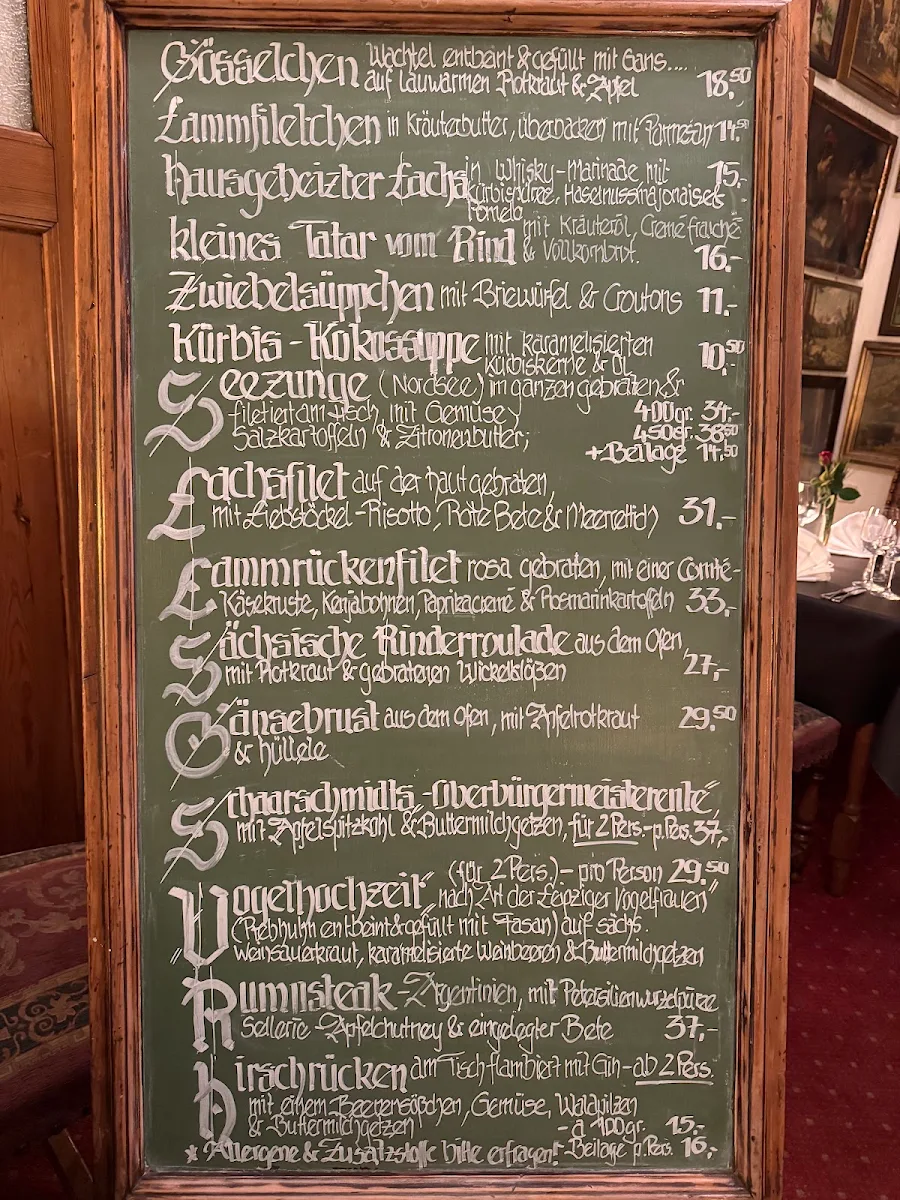 Gösselchen Wachtel entbeint & gefüllt mit Gans....
auf lauwarmen Rotkraut & Apfel 18,50
Lammfiletchen in Kräuterbutter, überbacken mit Parmesan 14,50
hausgebeizter Lachs in Whisky-Marinade mit 15,-
Kürbispüree, Haselnussmajonaise &
Pomelo
kleines Tatar vom Rind mit Kräuteröl, Creme fraiche
& Vollkornbrot. 16,-
Zwiebelsüppchen mit Briewürfel & Croutons 11,-
Kürbis-Kokossuppe mit karamelisierten
Kürbiskerne & Öl 10,50
Seezunge (Nordsee) im ganzen gebraten &
filetiert am Tisch, mit Gemüse, 400gr. 34,-
Salzkartoffeln & Zitronenbutter; 450gr. 38,50
+Beilage 14,50
Lachsfilet auf der Haut gebraten,
mit Liebstöckel-Risotto, Rote Bete & Meerrettich 31,-
Lammrückenfilet rosa gebraten, mit einer Comté-
Käsekruste, Kenjabohnen, Paprikacremé & Rosmarinkartoffeln 33,-
Sächsische Rinderroulade aus dem Ofen,
mit Rotkraut & gebratenen Wickelklößen 27,-
Gänsebrust aus dem Ofen, mit Apfelrotkraut 29,50
& hüllele
Schaarschmidts "Oberbürgermeisterente"
mit Apfelspitzkohl & Buttermilchgetzen, für 2 Pers.- p. Pers. 37,-
(für 2 Pers.) - pro Person 29,50
"Vogelhochzeit" "nach Art der Leipziger Vogelfrauen"
(Rebhuhn entbeint & gefüllt mit Fasan) auf sächs.
Weinsauerkraut, karamelisierte Weinbeeren & Buttermilchgetzen
Rumpsteak - Argentinien, mit Petersilienwurzelpüree
Sellerie-Apfelchutney & eingelegter Bete 37,-
Hirschrücken am Tisch flambiert mit Gin - ab 2 Pers.
mit einem Beerensößchen, Gemüse, Waldpilzen
& Buttermilchgetzen - á 100gr. 15,-
* Allergene & Zusatzstoffe bitte erfragen! - Beilage p. Pers. 16,-